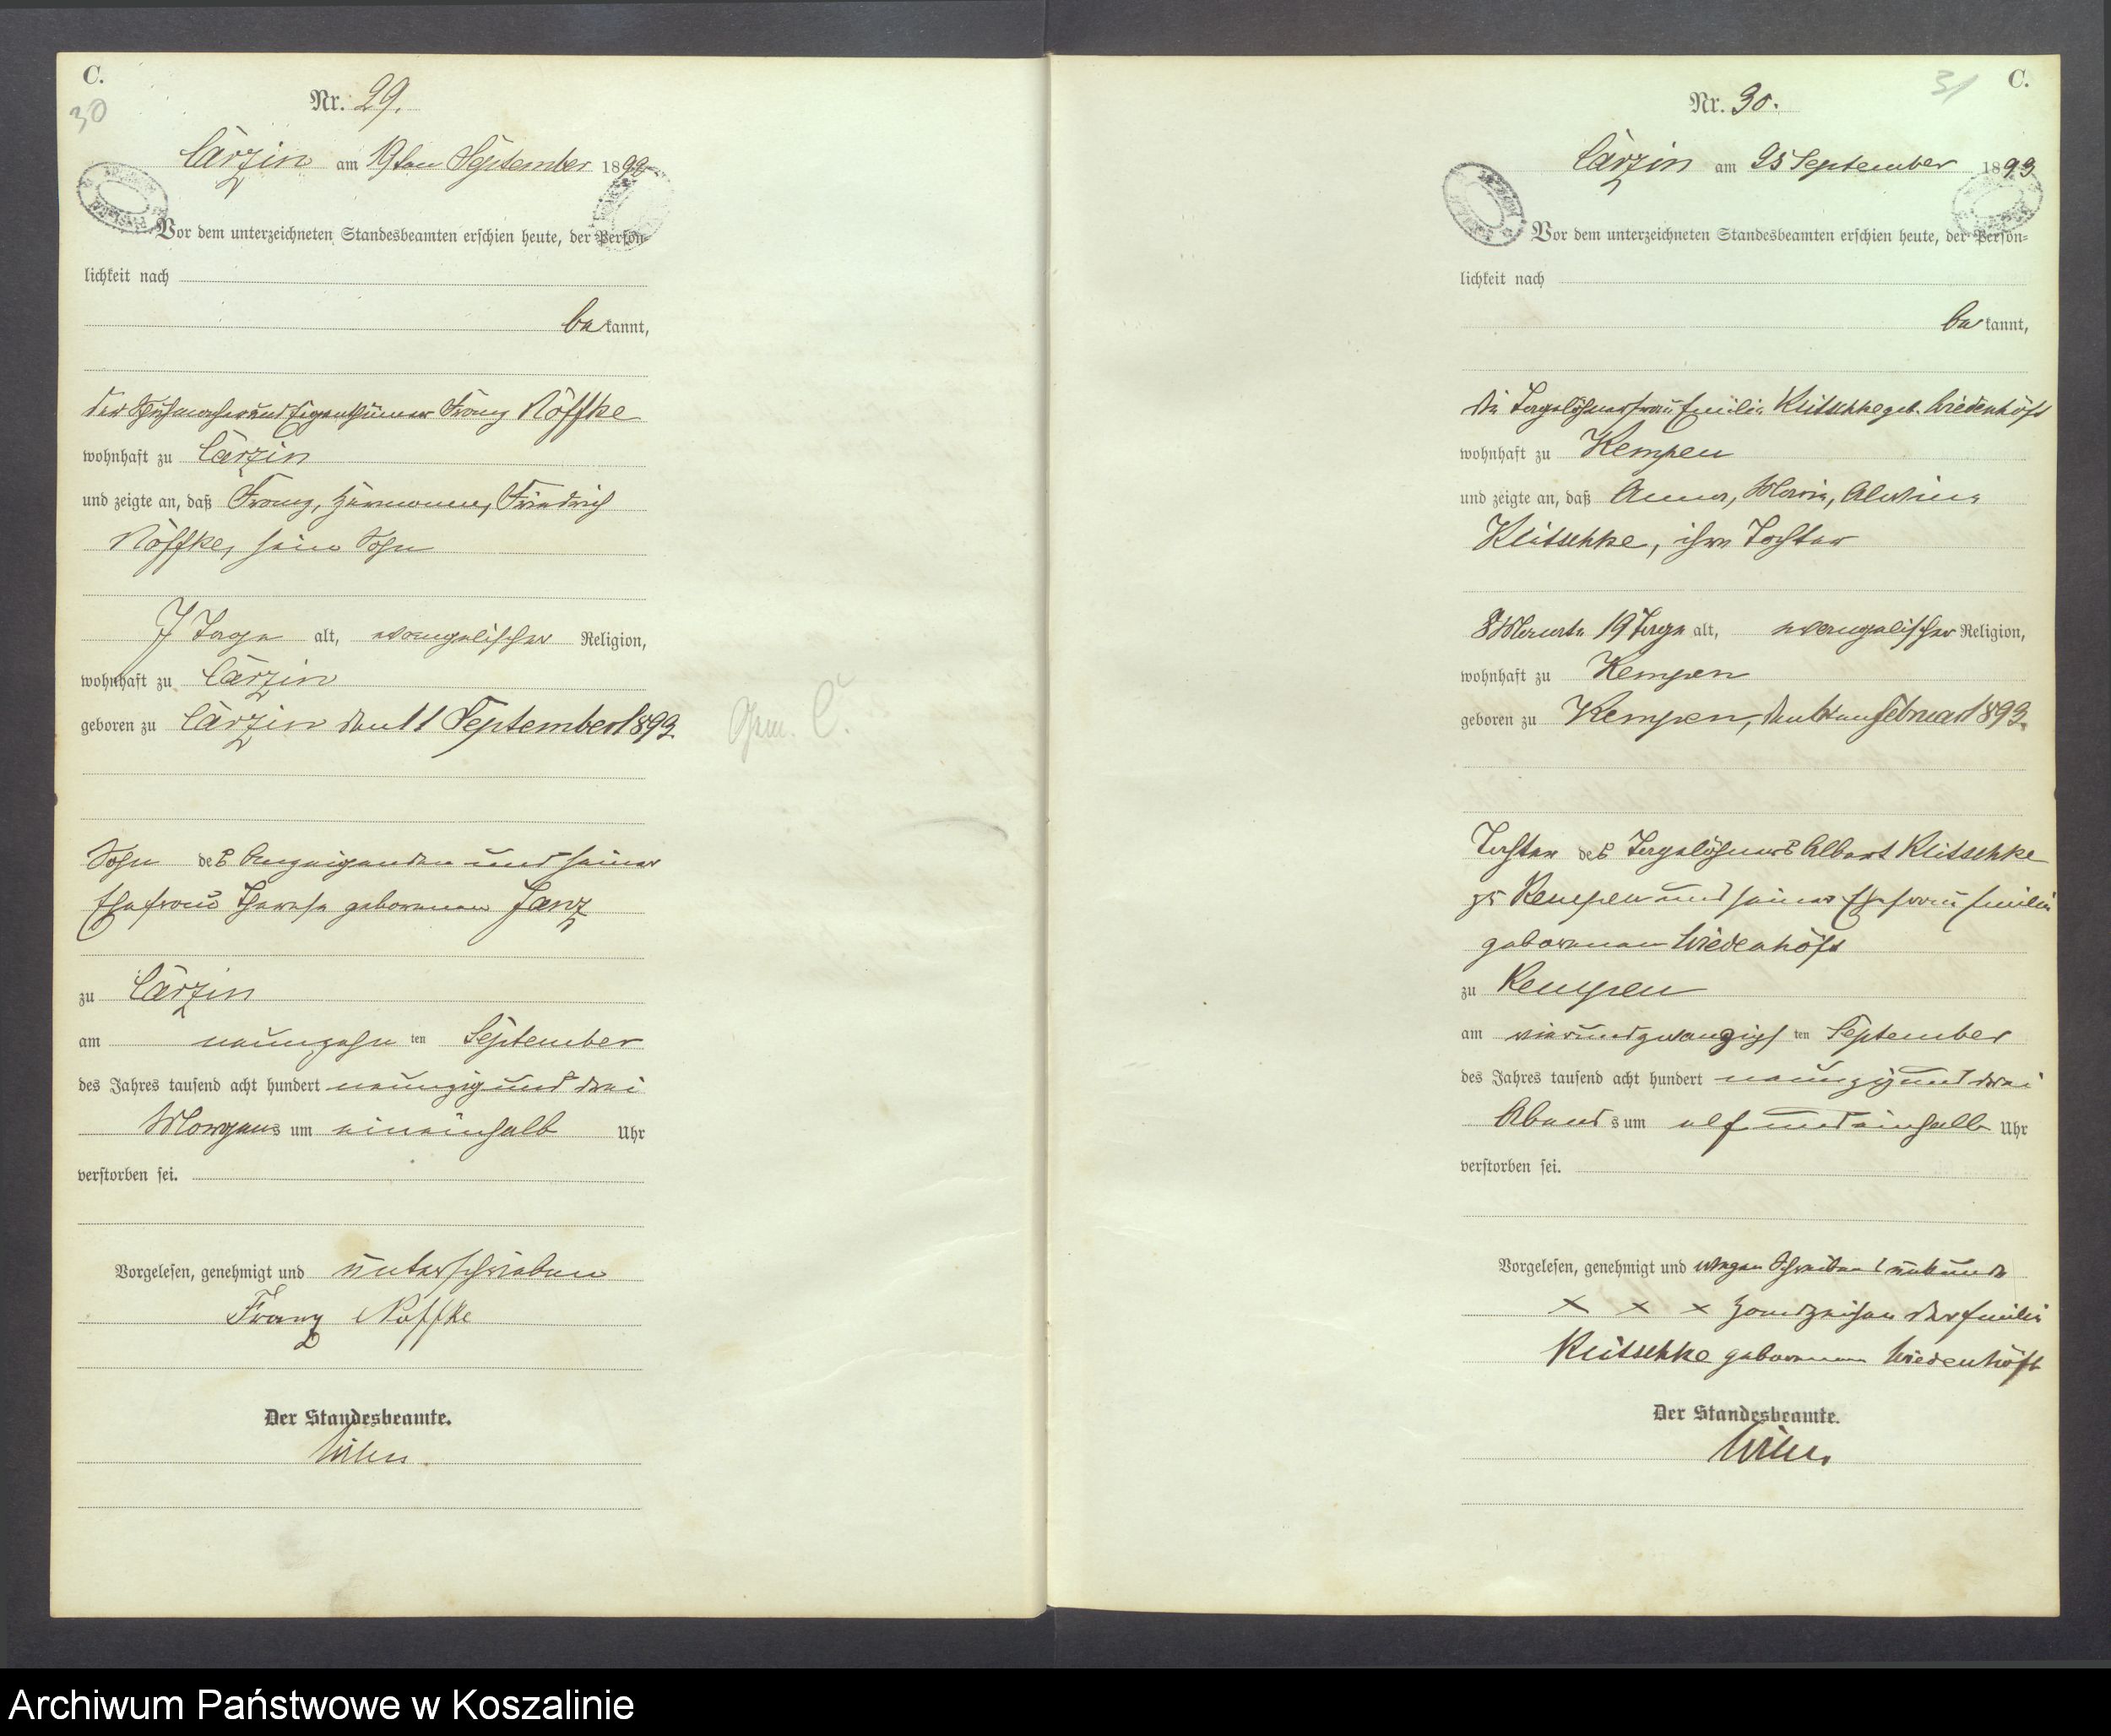 C.
30
Nr. 29.
Cärzin am 19ten September 1893
Vor dem unterzeichneten Standesbeamten erschien heute, der Persön-
lichkeit nach
be kannt,
der und Eigenthümer Franz Nöffke
wohnhaft zu Cärzin
und zeigte an, daß Franz, Hermann, Friedrich
Nöffke, sein Sohn
7 Tage alt, evangelischer Religion,
wohnhaft zu Cärzin
geboren zu Cärzin den 11 September 1893
Sohn des Anzeigenden und seiner
Ehefrau Therese geborenen Janz
zu Cärzin
am neunzehn ten September
des Jahres tausend acht hundert neunzig und drei
Morgens um eineinhalb Uhr
verstorben sei.
Vorgelesen, genehmigt und unterschrieben
Franz Nöffke
Der Standesbeamte.
31
C.
Nr. 30.
Cärzin am 25 September 1893
Vor dem unterzeichneten Standesbeamten erschien heute, der Persön-
lichkeit nach
be kannt,
die Tagelöhnerfrau Emilie Klitschke geb. Wiedenhöft
wohnhaft zu Kempen
und zeigte an, daß Anna, Marie, Alwine
Klitschke, ihre Tochter
8 Monate 19 Tage alt, evangelischer Religion,
wohnhaft zu Kempen
geboren zu Kempen, den Februar 1893.
Tochter des Tagelöhners Albert Klitschke
zu Kempen und seiner Ehefrau Emilie
geborenen Wiedenhöft
zu Kempen
am vierundzwanzigs ten September
des Jahres tausend acht hundert neunzig und drei
Abend s um elf und einhalb Uhr
verstorben sei.
Vorgelesen, genehmigt und wegen Schreibens unkunde
x x x Handzeichen der Emilie
Klitschke geborenen Wiedenhöft
Der Standesbeamte.
Archiwum Państwowe w Koszalinie